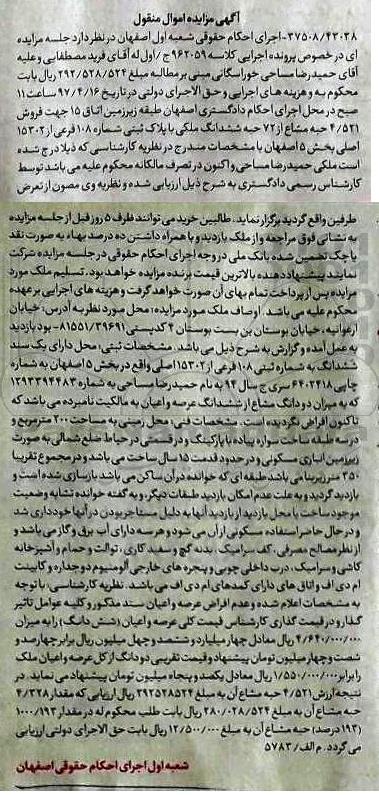 آگهی مزایده اموال منقول
۳۷۵۰۸/۴۳۰۳۸-اجرای احکام حقوقی شعبه اول اصفهان در نظر دارد جلسه مزایده
ای در خصوص پرونده اجرایی کلاسه ۹۶۲۰۵۹ ج/اول له آقای فرید مصطفایی و علیه
آقای حمیدرضا مساحی خوراسگانی مبنی بر مطالبه مبلغ ۲۹۲/۵۲۸/۵۲۴ ریال بابت
محکوم به و هزینه های اجرایی و حق الاجرای دولتی در تاریخ ۹۷/۰۴/۱۶ ساعت ۱۱
صبح در محل اجرای احکام دادگستری اصفهان طبقه زیرزمین اتاق ۱۵ جهت فروش
۴/۵۲۱ حبه مشاع از ۷۲ حبه ششدانگ ملکی با پلاک ثبتی شماره ۱۰۸ فرعی از ۱۵۳۰۲
اصلی بخش ۵ اصفهان با مشخصات مندرج در نظریه کارشناسی که ذیلا درج شده
است ملکی حمیدرضا مساحی و اکنون در تصرف مالکانه محکوم علیه می باشد توسط
کارشناس رسمی دادگستری به شرح ذیل ارزیابی شده و نظریه وی مصون از تعرض
طرفین واقع گردید برگزار نماید، طالبین خرید می توانند ظرف ۵ روز قبل از جلسه مزایده
به نشانی فوق مراجعه و از ملک بازدید و با همراه داشتن ده درصد بهاء به صورت نقد
یا چک تضمین شده بانک ملی در وجه اجرای احکام حقوقی در جلسه مزایده شرکت
نمایند پیشنهاد دهنده بالاترین قیمت برنده مزایده خواهد بود. تسلیم ملک مورد
مزایده پس از پرداخت تمام بهای آن صورت خواهد گرفت و هزینه های اجرایی بر عهده
محکوم علیه می باشد. اوصاف ملک مورد مزایده: محل مورد نظر به آدرس: خیابان
ارغوانیه، خیابان بوستان بن بست بوستان ۴ کدپستی ۳۹۶۹۱/۸۱۵۵۱- بود بازدید
به عمل آمده و گزارش به شرح ذیل می باشد. مشخصات ثبتی: محل دارای یک سند
ششدانگ به شماره ثبتی ۱۰۸ فرعی از ۱۵۳۰۲ اصلی واقع در بخش ۵ اصفهان به شماره
چاپی ۶۴۰۲۴۱۸ سری ج سال ۹۴ به نام حمیدرضا مساحی به شماره ۱۳۹۳۳۹۴۴۸۳
که به میزان دو دانگ مشاع از ششدانگ عرصه و اعیان به مالکیت نامبرده می باشد که
تاکنون افرازی نگردیده است. مشخصات فنی: محل زمینی به مساحت ۲۰۰ مترمربع و
در سه طبقه ساخت سواره پیاده با پارکینگ و در قسمتی در حیاط ضلع شمالی به صورت
زیرزمین انباری مسکونی و در حدود قدمت ۱۵ سال ساخت می باشد و در مجموع تقریبا
۳۵۰ متر زیربنا می باشد طبقه ای که خوانده در آن ساکن می باشد بازسازی شده است و
بازدید گردید و به علت عدم امکان بازدید طبقات دیگر، و به گفته خوانده تشابه وضعیت
موجود ساخت با محل بازدید از بازدید آنها به دلیل مستاجر بودن در آنها خودداری شد
و در حال حاضر استفاده مسکونی از آن می شود و هر سه دارای آب برق و گاز می باشد و
از نظر مصالح مصرفی، کف سرامیک، بدنه گچ و سفید کاری، توالت و حمام و آشپزخانه
کاشی و سرامیک، درب داخلی چوبی و پنجره های خارجی آلومینیوم دوجداره و کابینت
ام دی اف و اتاق های دارای کمدهای ام دی اف می باشد. نظریه کارشناسی: با توجه
به مشخصات اعلام شده و عدم افراض عرصه و اعیان سند مذکور و کلیه عوامل تاثیر
گذار و در قیمت گذاری کارشناس قیمت کلی عرصه و اعیان (شش دانگ) را به میزان
۴/۶۴۰/۰۰۰/۰۰۰ ریال معادل چهار میلیارد و ششصد و چهل میلیون ریال برابر چهارصد و
شصت و چهار میلیون تومان پیشنهاد و قیمت تقریبی دو دانگ از کل عرصه و اعیان ملک
را برابر ۱/۵۵۰/۰۰۰/۰۰۰ ریال معادل یکصد و پنجاه میلیون تومان پیشنهاد می نماید. در
نتیجه ارزش ۴/۵۲۱ حبه مشاع آن به مبلغ ۲۹۲۵۲۸۵۲۴ ریال ارزیابی که مقدار ۴/۳۲۸
حبه مشاع آن به مبلغ ۲۸۰/۰۲۸/۵۲۴ ریال بابت طلب محکوم له در مقدار ۱۰۰۰/۱۹۳
(۱۹۳ درصد) حبه مشاع آن به مبلغ ۱۲/۵۰۰/۰۰۰ ریال بابت حق الاجرای دولتی ارزیابی
می گردد. م الف/ ۵۷۸۳
شعبه اول اجرای احکام حقوقی اصفهان